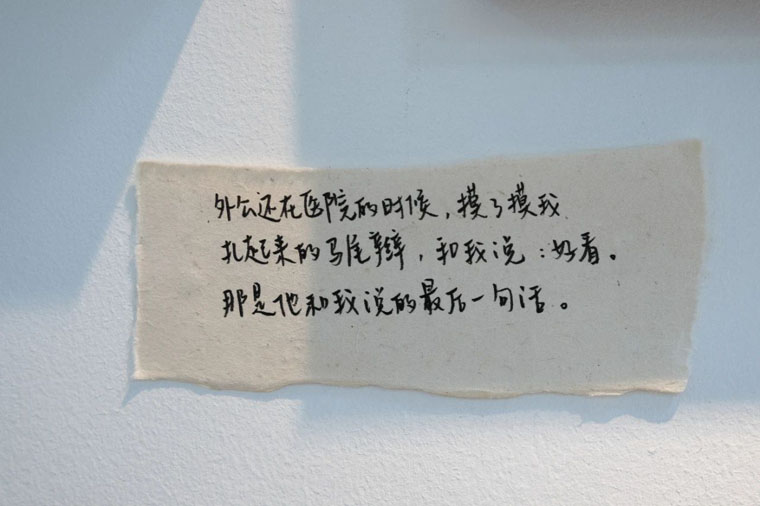 外公还在医院的时候，摸了摸我
扎起来的马尾辫，和我说：好看。
那是他和我说的最后一句话。